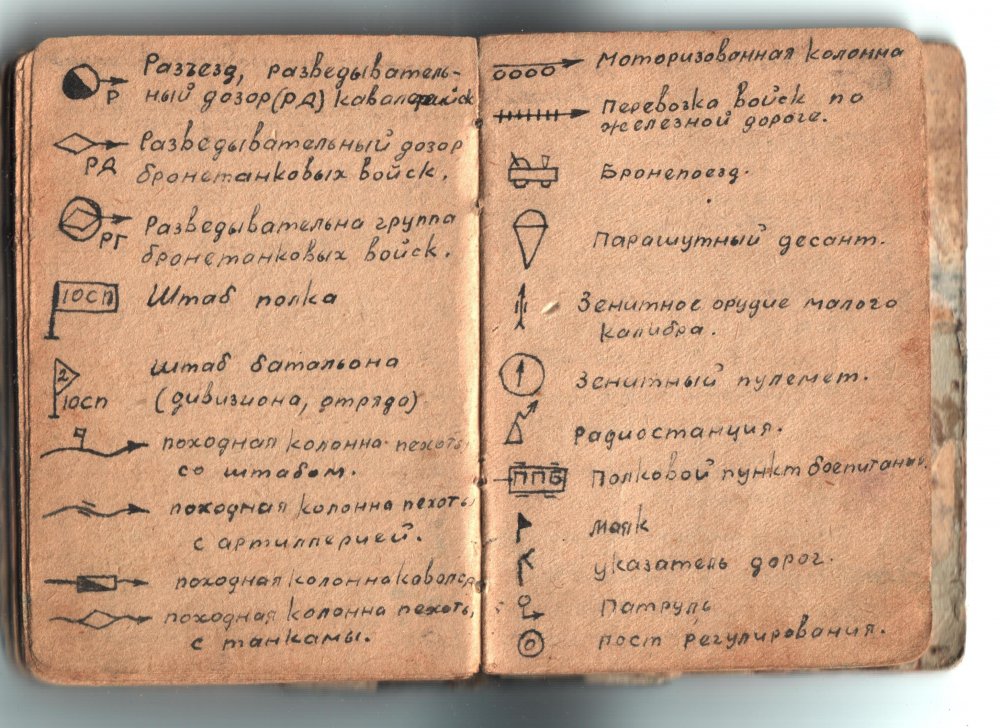 Р
Разъезд, разведыватель-
ный дозор (РД) кавалерийск
РД
Разведывательный дозор
бронетанковых войск.
РГ
Разведывательна группа
бронетанковых войск.
10СП
Штаб полка
2
10сп
штаб батальона
(дивизиона, отряда)
походная колонна пехоты
со штабом.
походная колонна пехоты
с артиллерией.
походная колонна кавалер
походная колонна пехоты,
с танкамы.
Моторизованная колонна
Перевозка войск по
железной дороге.
Бронепоезд.
Парашутный десант.
Зенитное орудие малого
калибра.
Зенитный пулемет.
радиостанция.
ППБ
Полковой пункт боепитания.
маяк
указатель дорог.
Патруль
пост регулирования.